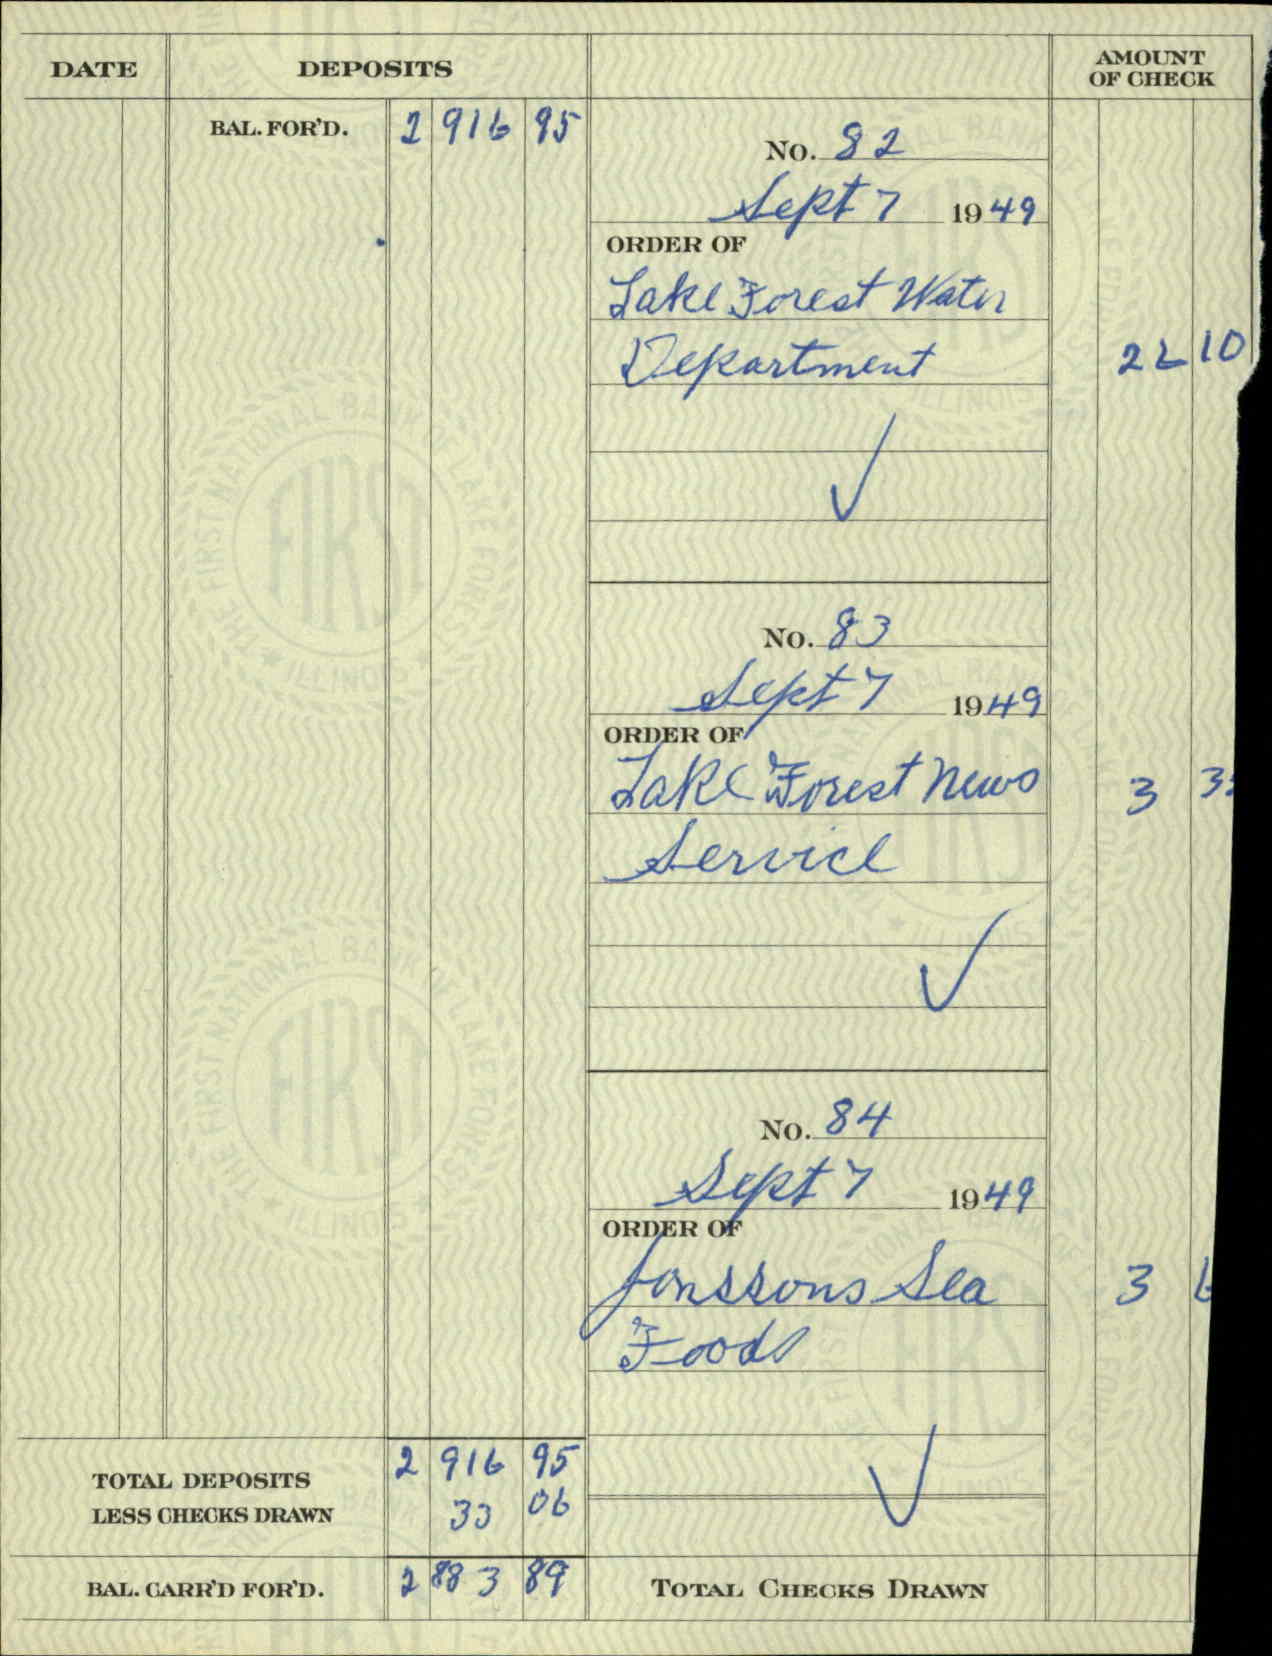 DATE DEPOSITS AMOUNT
OF CHECK
BAL. FOR'D. 2 916 95
No. 82
Sept 7 1949
ORDER OF
Lake Forest Water
Department 26 10
No. 83
Sept 7 1949
ORDER OF
Lake Forest News 3 3
Service
No. 84
Sept 7 1949
ORDER OF
Jonssons Sea 3 6
Foods
TOTAL DEPOSITS 2 916 95
LESS CHECKS DRAWN 33 06
BAL. CARR'D FOR'D. 2 883 89 TOTAL CHECKS DRAWN
THE FIRST NATIONAL BANK OF LAKE FOREST
FIRST
ILLINOIS